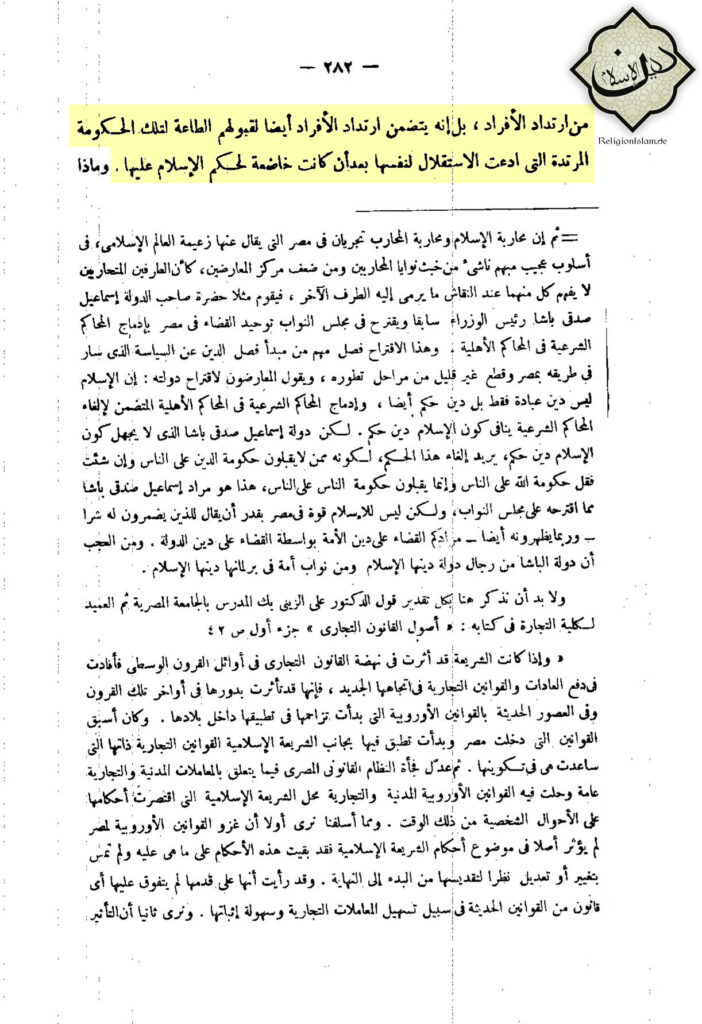 — ٢٨٢ —
دين الإسلام
ReligionIslam.de
من ارتداد الأفراد ، بل إنه يتضمن ارتداد الأفراد أيضا لقبولهم الطاعة لتلك الحكومة
المرتدة التى ادعت الاستقلال لنفسها بعد أن كانت خاضعة لحكم الإسلام عليها . وماذا
= ثم إن محاربة الإسلام ومحاربة المحارب تجريان فى مصر التى يقال عنها زعيمة العالم الإسلامى، فى
أسلوب عجيب مبهم ناشئ من خبث نوايا المحاربين ومن ضعف مركز المعارضين، كأن الطرفين المتحاربين
لا يفهم كل منهما عند النقاش ما يرمى إليه الطرف الآخر ، فيقوم مثلا حضرة صاحب الدولة إسماعيل
صدقى باشا رئيس الوزراء سابقا ويقترح فى مجلس النواب توحيد القضاء فى مصر بإدماج المحاكم
الشرعية فى المحاكم الأهلية . وهذا الاقتراح فصل مهم من مبدأ فصل الدين عن السياسة الذى سار
فى طريقه بمصر وقطع غير قليل من مراحل تطوره ، ويقول المعارضون لاقتراح دولته : إن الإسلام
ليس دين عبادة فقط بل دين حكم أيضا ، وإدماج المحاكم الشرعية فى المحاكم الأهلية المتضمن لإلغاء
المحاكم الشرعية ينافى كون الإسلام دين حكم . لكن دولة إسماعيل صدقى باشا الذى لا يجهل كون
الإسلام دين حكم، يريد إلغاء هذا الحكم، لكونه ممن لا يقبلون حكومة الدين على الناس وإن شئت
فقل حكومة الله على الناس وإنما يقبلون حكومة الناس على الناس، هذا هو مراد إسماعيل صدقى باشا
مما اقترحه على مجلس النواب، ولكن ليس للإسلام قوة فى مصر بقدر أن يقال للذين يضمرون له شرا
— وربما يظهرونه أيضا — مرادكم القضاء على دين الأمة بواسطة القضاء على دين الدولة . ومن العجب
أن دولة الباشا من رجال دولة دينها الإسلام ومن نواب أمة فى برلمانها دينها الإسلام .
ولا بد أن نذكر هنا بكل تقدير قول الدكتور على الزينى بك المدرس بالجامعة المصرية ثم العميد
لكلية التجارة فى كتابه : « أصول القانون التجارى » جزء أول ص ٤٢
« وإذا كانت الشريعة قد أثرت فى نهضة القانون التجارى فى أوائل القرون الوسطى فأفادت
فى دفع العادات والقوانين التجارية فى اتجاهها الجديد ، فإنها قد تأثرت بدورها فى أواخر تلك القرون
وفى العصور الحديثة بالقوانين الأوروبية التى بدأت تزاحمها فى تطبيقها داخل بلادها . وكان أسبق
القوانين التى دخلت مصر وبدأت تطبق فيها بجانب الشريعة الإسلامية القوانين التجارية ذاتها التى
ساعدت هى فى تكوينها . ثم عدّل فجأة النظام القانونى المصرى فيما يتعلق بالمعاملات المدنية والتجارية
عامة وحلت فيه القوانين الأوروبية المدنية والتجارية محل الشريعة الإسلامية التى اقتصرت أحكامها
على الأحوال الشخصية من ذلك الوقت . ومما أسلفنا نرى أولا أن غزو القوانين الأوروبية لمصر
لم يؤثر أصلا فى موضوع أحكام الشريعة الإسلامية فقد بقيت هذه الأحكام على ما هى عليه ولم تمس
بتغيير أو تعديل نظرا لتقديسها من البدء إلى النهاية . وقد رأيت أنها على قدمها لم يتفوق عليها أى
قانون من القوانين الحديثة فى سبيل تسهيل المعاملات التجارية وسهولة إثباتها . ونرى ثانيا أن التأثير